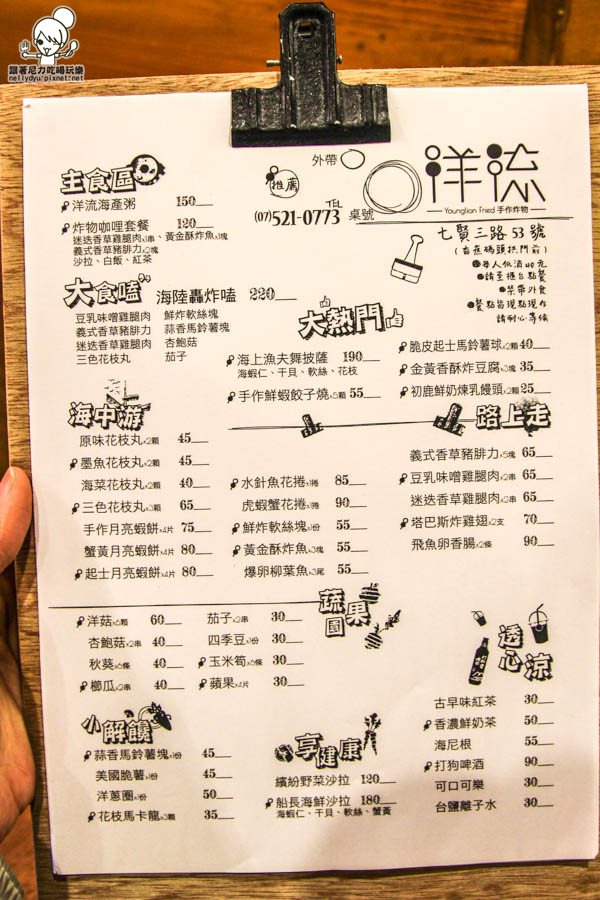 跟著尼力吃喝玩樂
nellydyu.pixnet.net
外帶
推薦
TEL
(07)521-0773 桌號
洋流
Younglion Fried 手作炸物
七賢三路53號
(香蕉碼頭拱門前)
每人低消40元
請至櫃台點餐
禁帶外食
餐點皆現點現作
請耐心等候
主食區
洋流海產粥 150
炸物咖哩套餐 120
迷迭香草雞腿肉x1串、黃金酥炸魚x1塊
義式香草豬腓力x2塊
沙拉、白飯、紅茶
大食嗑 海陸轟炸嗑 220
豆乳味噌雞腿肉 鮮炸軟絲塊
義式香草豬腓力 蒜香馬鈴薯塊
迷迭香草雞腿肉 杏鮑菇
三色花枝丸 茄子
大熱門
海上漁夫舞披薩 190
海蝦仁、干貝、軟絲、花枝
手作鮮蝦餃子燒x5顆 55
脆皮起士馬鈴薯球x2顆 40
金黃香酥炸豆腐x3塊 35
初鹿鮮奶煉乳饅頭x2顆 25
海中游
原味花枝丸x2顆 45
墨魚花枝丸x2顆 45
海菜花枝丸x2顆 40
三色花枝丸x3顆 65
手作月亮蝦餅x4片 75
蟹黃月亮蝦餅x4片 80
起士月亮蝦餅x4片 80
水針魚花捲x1捲 85
虎蝦蟹花捲x1捲 90
鮮炸軟絲塊x1份 55
黃金酥炸魚x3塊 55
爆卵柳葉魚x3尾 55
路上走
義式香草豬腓力x5塊 65
豆乳味噌雞腿肉x2串 65
迷迭香草雞腿肉x2串 65
塔巴斯炸雞翅x2支 70
飛魚卵香腸x2條 90
蔬果園
洋菇x6顆 60
杏鮑菇x2串 40
秋葵x6條 40
櫛瓜x2串 40
茄子x2串 30
四季豆x1份 30
玉米筍x6條 30
蘋果x4片 30
透心涼
古早味紅茶 30
香濃鮮奶茶 50
海尼根 55
打狗啤酒 90
可口可樂 30
台鹽離子水 30
小解饞
蒜香馬鈴薯塊x1份 45
美國脆薯x1份 45
洋蔥圈x1份 50
花枝馬卡龍x3顆 35
享健康
繽紛野菜沙拉 120
船長海鮮沙拉 180
海蝦仁、干貝、軟絲、蟹黃